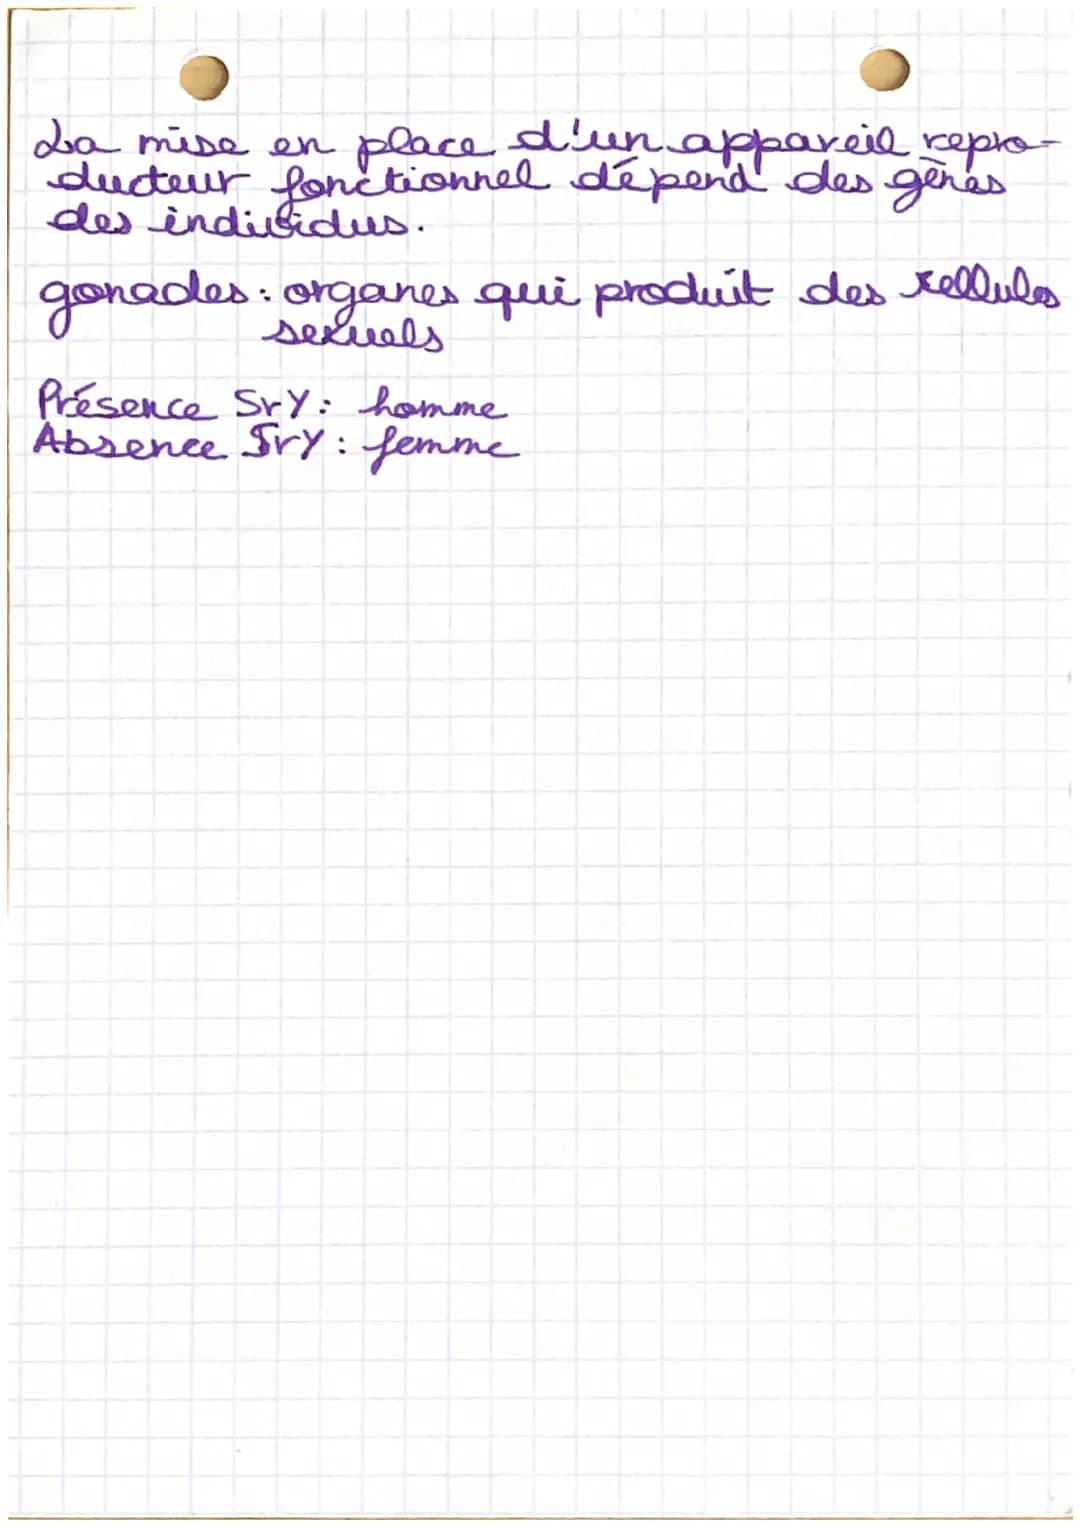 La mise en place d'un appareil repro-
ducteur fonctionnel dépend des gènes
des individus.
gonades: organes qui produit des cellules
sexuels
Présence SrY: homme
Absence SrY: femme